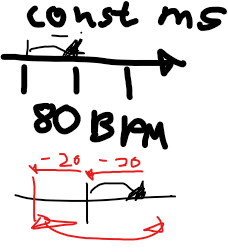 const ms
80 BPM
-20 -20